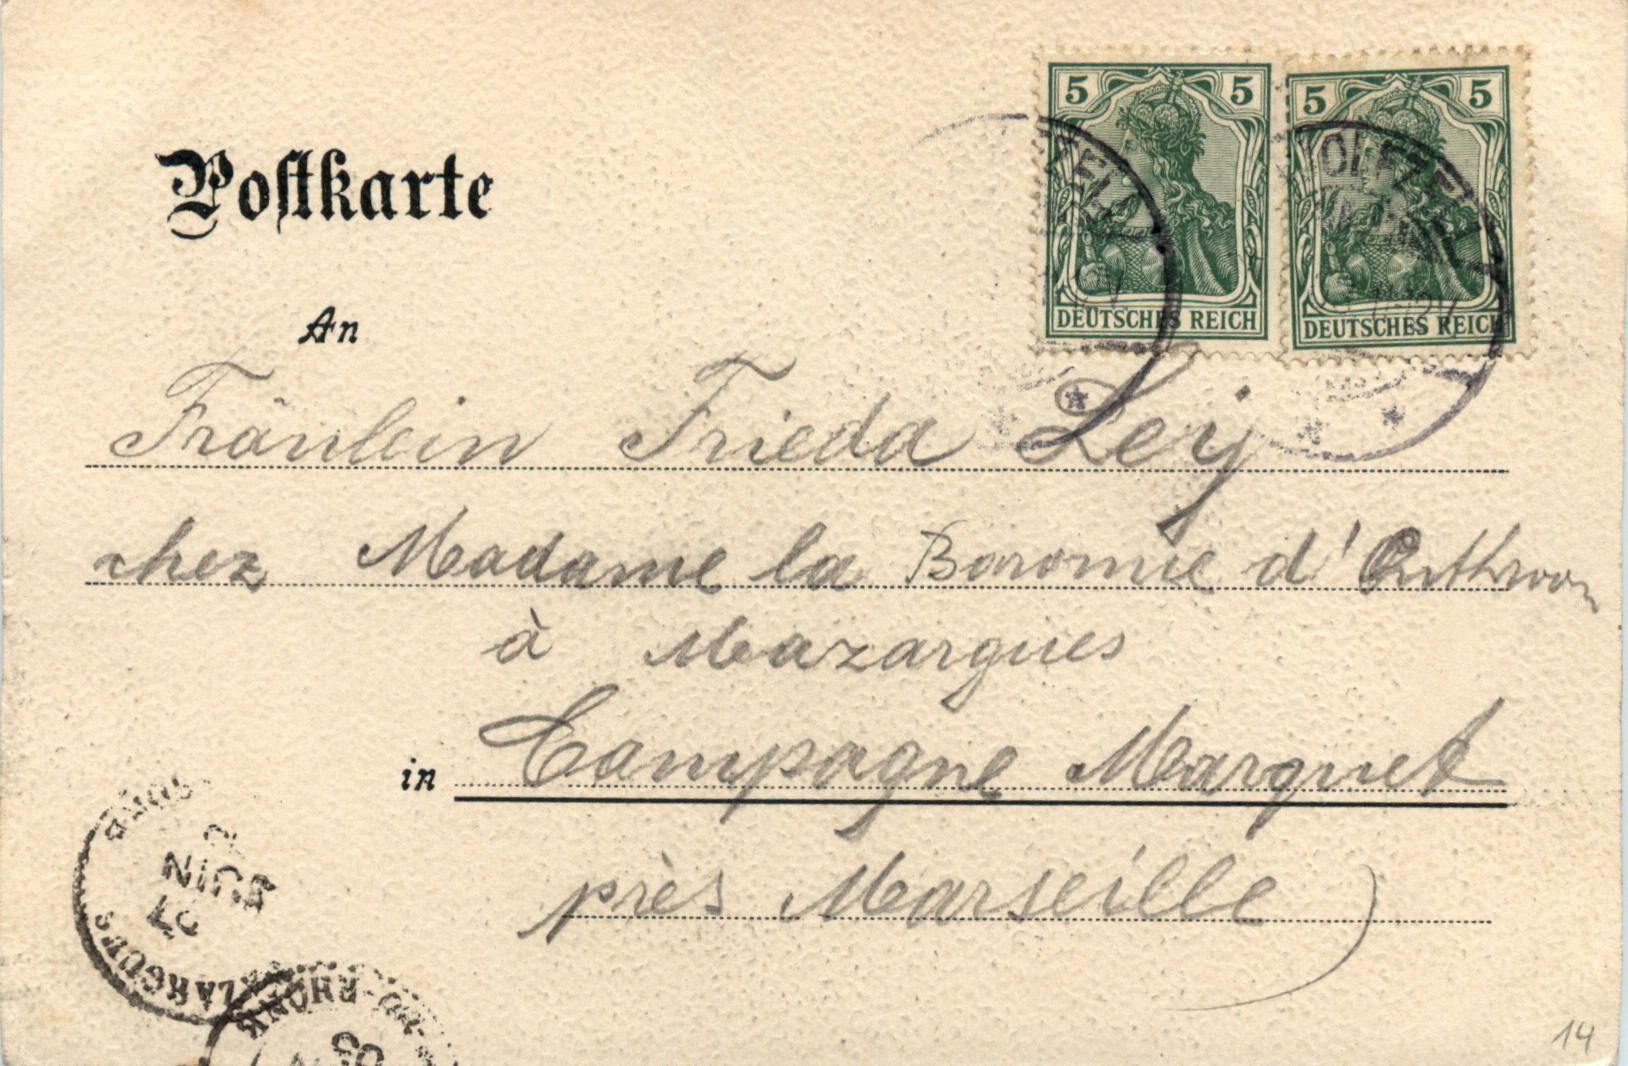 Postkarte
5 5
5 5
DEUTSCHES REICH
DEUTSCHES REICH
An
Fräulein Frieda Ley
chez Madame la Baronnie d'
à Mazargues
in Campagne Marquet
près Marseille
JUIN
RHONE
03
14